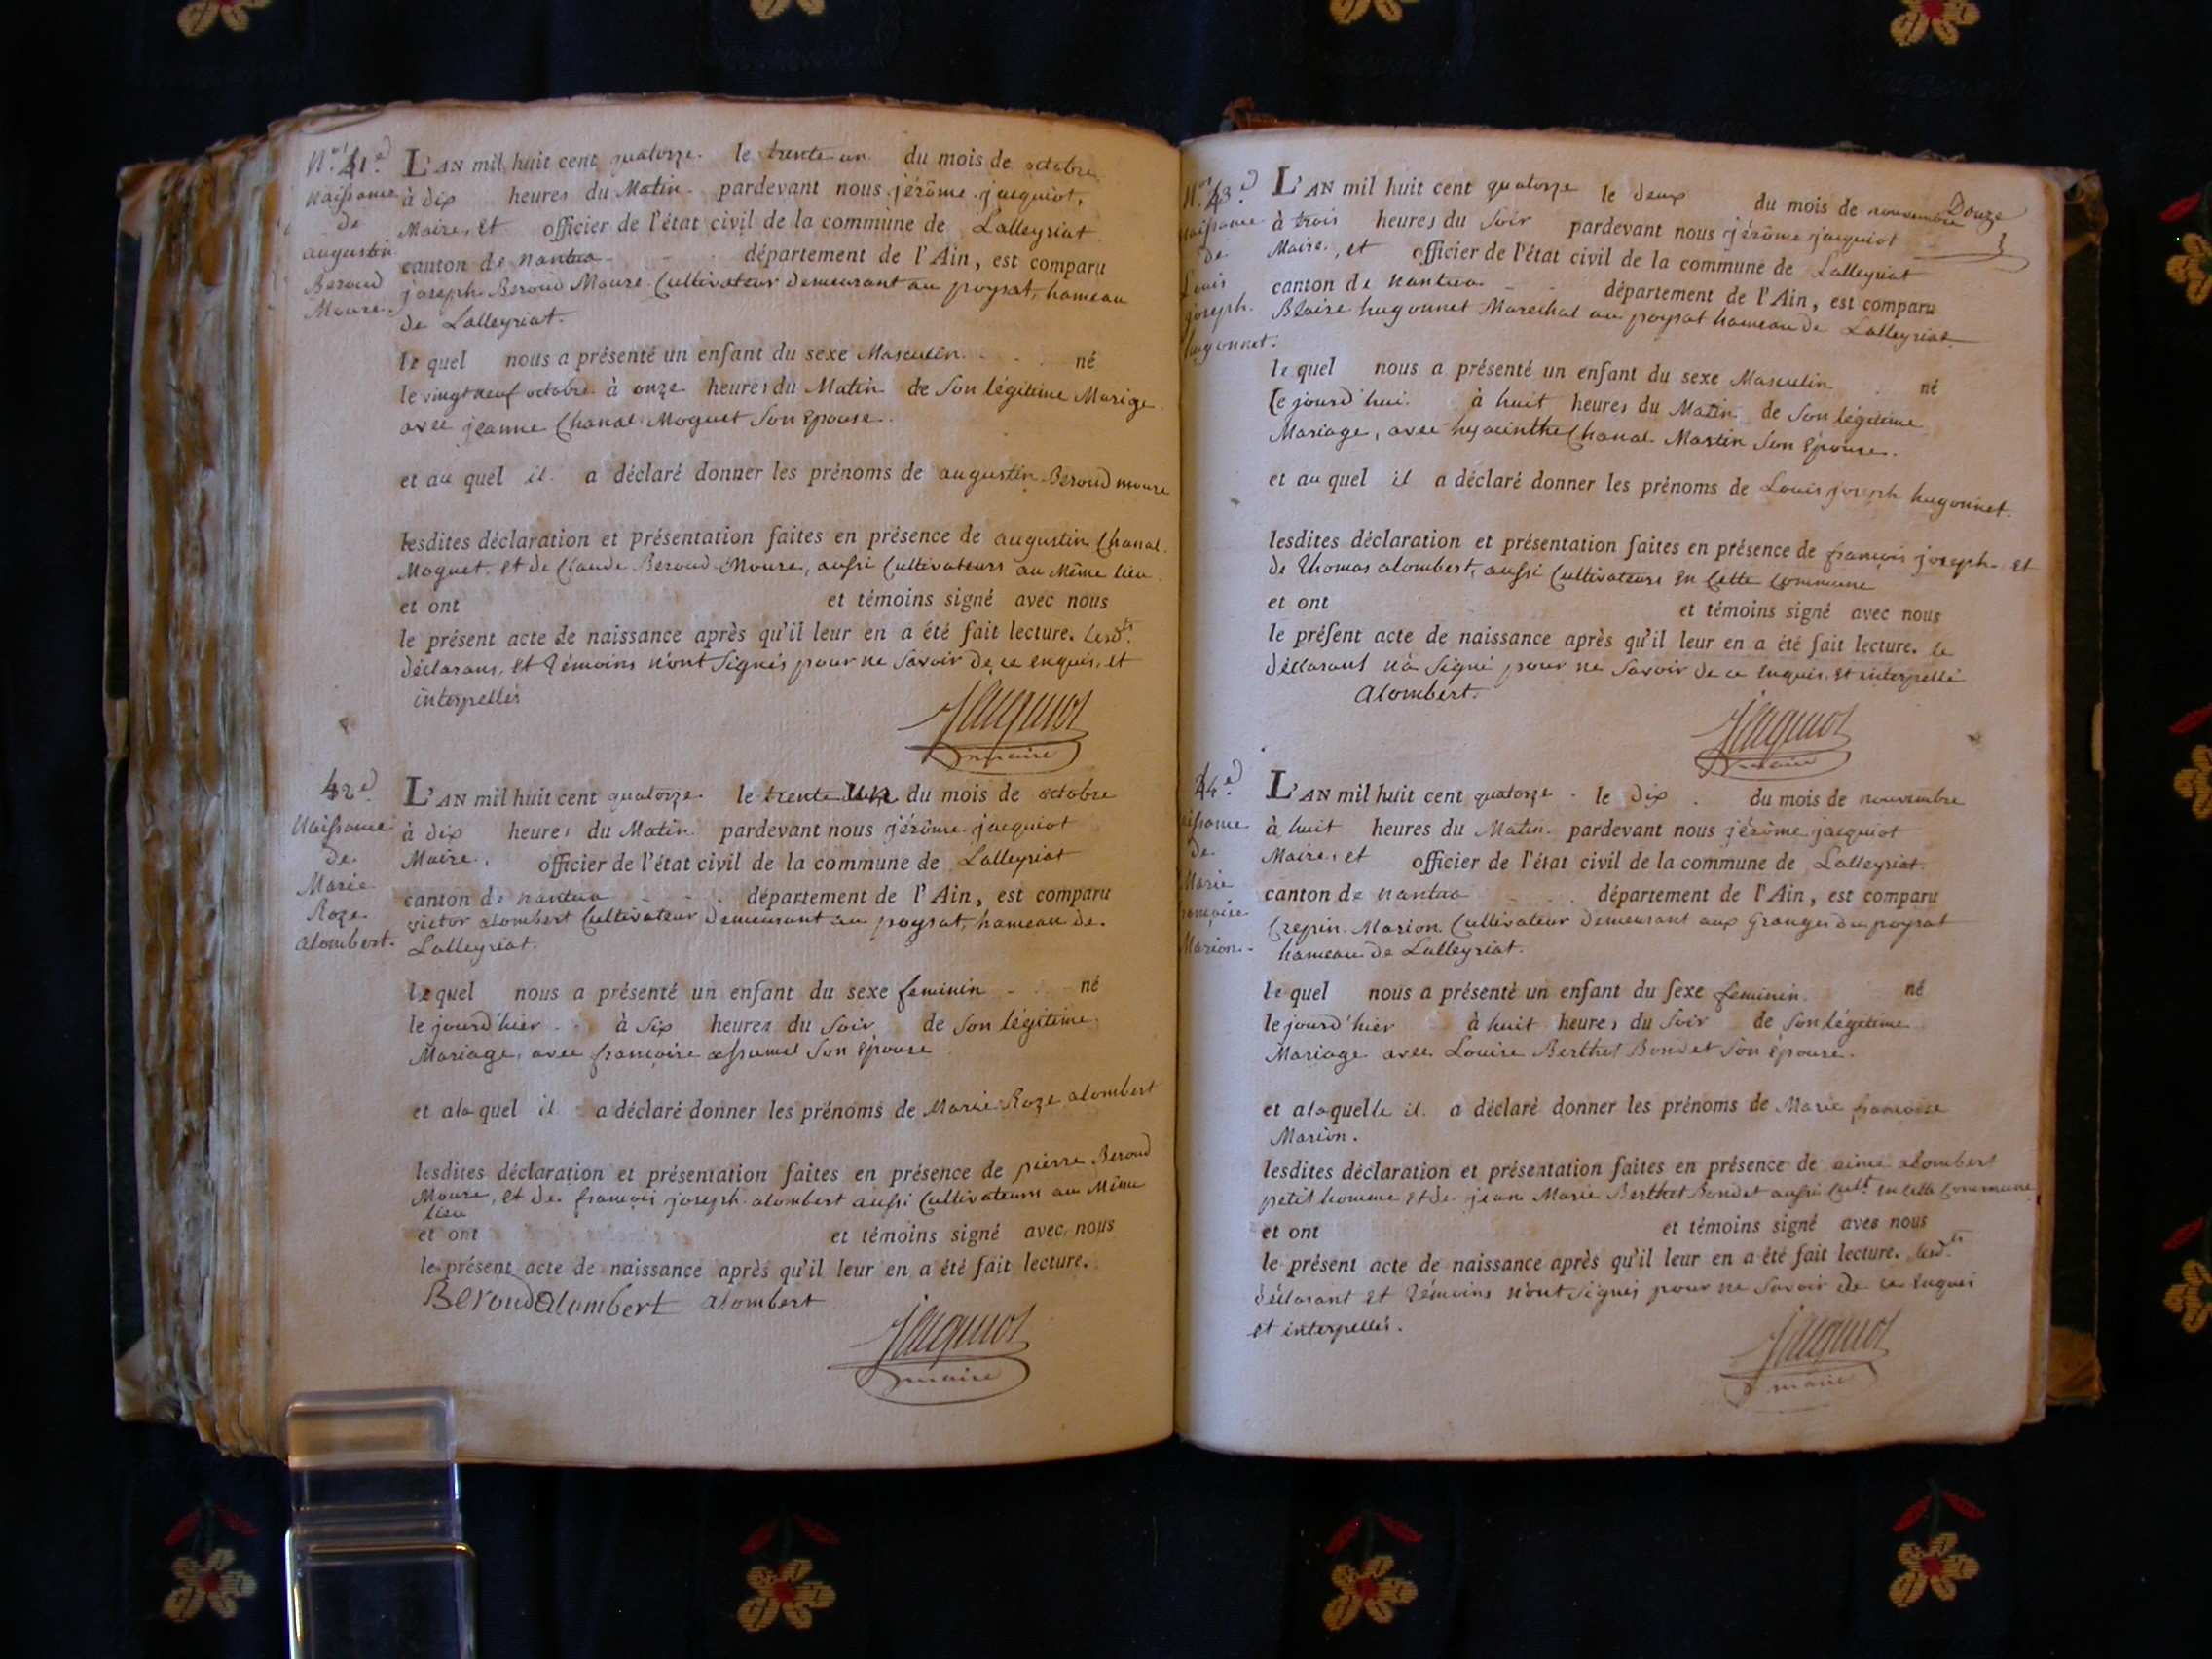 N.º 41.e
Naissance
de
augustin
Beroud
Moure.
L'AN mil huit cent quatorze. le trente un du mois de octobre
à dix heures du Matin. pardevant nous jérôme jacquiot,
Maire, et officier de l'état civil de la commune de Lalleyriat
canton de nantua département de l'Ain, est comparu
joseph Beroud Moure Cultivateur demeurant au poysat, hameau
de Lalleyriat.
le quel nous a présenté un enfant du sexe Masculin né
le vingt neuf octobre à onze heures du Matin de Son légitime Marige
avec jeanne Chanal Moguet Son Epouse.
et au quel il a déclaré donner les prénoms de augustin Beroud moure
lesdites déclaration et présentation faites en présence de augustin Chanal
Moguet, et de Claude Beroud Moure, aussi Cultivateurs au Même lieu
et ont et témoins signé avec nous
le présent acte de naissance après qu'il leur en a été fait lecture. Lesd.ts
déclarans, et témoins n'ont Signés pour ne Savoir de ce enquis, et
interpellés
jacquiot
maire
42e
Naissance
de
Marie
Roze
alombert.
L'AN mil huit cent quatorze le trente un du mois de octobre
à dix heures du Matin pardevant nous jérôme jacquiot
Maire, officier de l'état civil de la commune de Lalleyriat
canton de nantua département de l'Ain, est comparu
victor alombert Cultivateur demeurant au poysat, hameau de
Lalleyriat.
le quel nous a présenté un enfant du sexe feminin né
le jourd'hier à Six heures du Soir de Son légitime
Mariage, avec françoise Son Epouse
et ala quel il a déclaré donner les prénoms de Marie Roze alombert
lesdites déclaration et présentation faites en présence de pierre Beroud
Moure, et de françois joseph alombert aussi Cultivateurs au Même
lieu
et ont et témoins signé avec nous
le présent acte de naissance après qu'il leur en a été fait lecture.
Beroud alombert alombert
jacquiot
maire
Douze
N.º 43.e
Naissance
de
Louis
joseph
hugonnet.
L'AN mil huit cent quatorze le deux du mois de novembre
à trois heures du Soir pardevant nous jérôme jacquiot
Maire, et officier de l'état civil de la commune de Lalleyriat
canton de nantua département de l'Ain, est comparu
Blaise hugonnet Marechal au poysat hameau de Lalleyriat
le quel nous a présenté un enfant du sexe Masculin né
Ce jourd'hui à huit heures du Matin de Son légitime
Mariage, avec hyacinthe Chanal Martin Son Epouse.
et au quel il a déclaré donner les prénoms de Louis joseph hugonnet.
lesdites déclaration et présentation faites en présence de françois joseph et
de Thomas alombert, aussi Cultivateurs en Cette Commune
et ont et témoins signé avec nous
le présent acte de naissance après qu'il leur en a été fait lecture. le
déclarant n'à Signé pour ne Savoir de ce enquis, et interpellé
alombert.
jacquiot
maire
44.e
Naissance
de
Marie
françoise
Marion.
L'AN mil huit cent quatorze le dix du mois de nouvembre
à huit heures du Matin pardevant nous jérôme jacquiot
Maire, et officier de l'état civil de la commune de Lalleyriat
canton de nantua département de l'Ain, est comparu
Crepin Marion Cultivateur demeurant aux Granges du poysat
hameau de Lalleyriat.
le quel nous a présenté un enfant du sexe feminin né
le jourd'hier à huit heures du Soir de Son légitime
Mariage avec Louise Berthet Bondet Son épouse.
et alaquelle il a déclaré donner les prénoms de Marie françoise
Marion.
lesdites déclaration et présentation faites en présence de aimé alombert
petit homme et de jean Marie Berthet Bondet aussi Cult. en Cette Commune
et ont et témoins signé avec nous
le présent acte de naissance après qu'il leur en a été fait lecture. lesd.ts
déclarant et témoins n'ont Signés pour ne Savoir de ce enquis
et interpellés.
jacquiot
maire